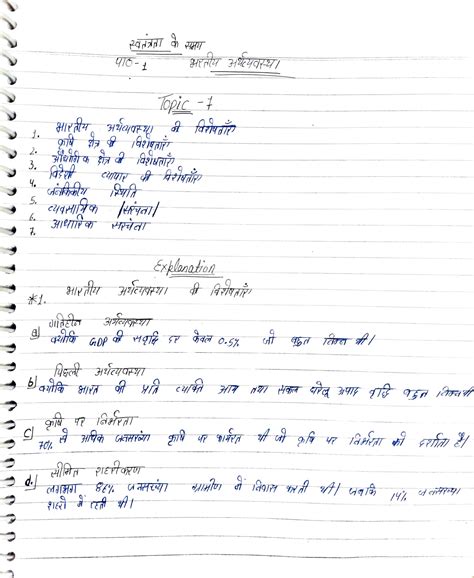 स्वतंत्रता के समय
पाठ-1 भारतीय अर्थव्यवस्था।
Topic - 7
1. भारतीय अर्थव्यवस्था की विशेषताएँ
2. कृषि क्षेत्र की विशेषताएँ
3. औद्योगिक क्षेत्र की विशेषताएँ
4. विदेशी व्यापार की विशेषताएँ
5. जनांकिकीय स्थिति
6. व्यवसायिक /संरचना/
7. आधारिक संरचना
Explanation
*1. भारतीय अर्थव्यवस्था की विशेषताएँ
a) गतिहीन अर्थव्यवस्था
क्योकि GDP की संवृद्धि दर केवल 0.5% जो बहुत निम्न थी।
b) पिछड़ी अर्थव्यवस्था
क्योकि भारत की प्रति व्यक्ति आय तथा सकल घरेलू उत्पाद वृद्धि बहुत निम्न थी
c) कृषि पर निर्भरता
70% से अधिक जनसंख्या कृषि पर निर्भर थी जो कृषि पर निर्भरता को दर्शाता है।
d.) सीमित शहरीकरण
लगभग 86% जनसंख्या ग्रामीण में निवास करती थी। जबकि 14% जनसंख्या
शहरो में रहती थी।